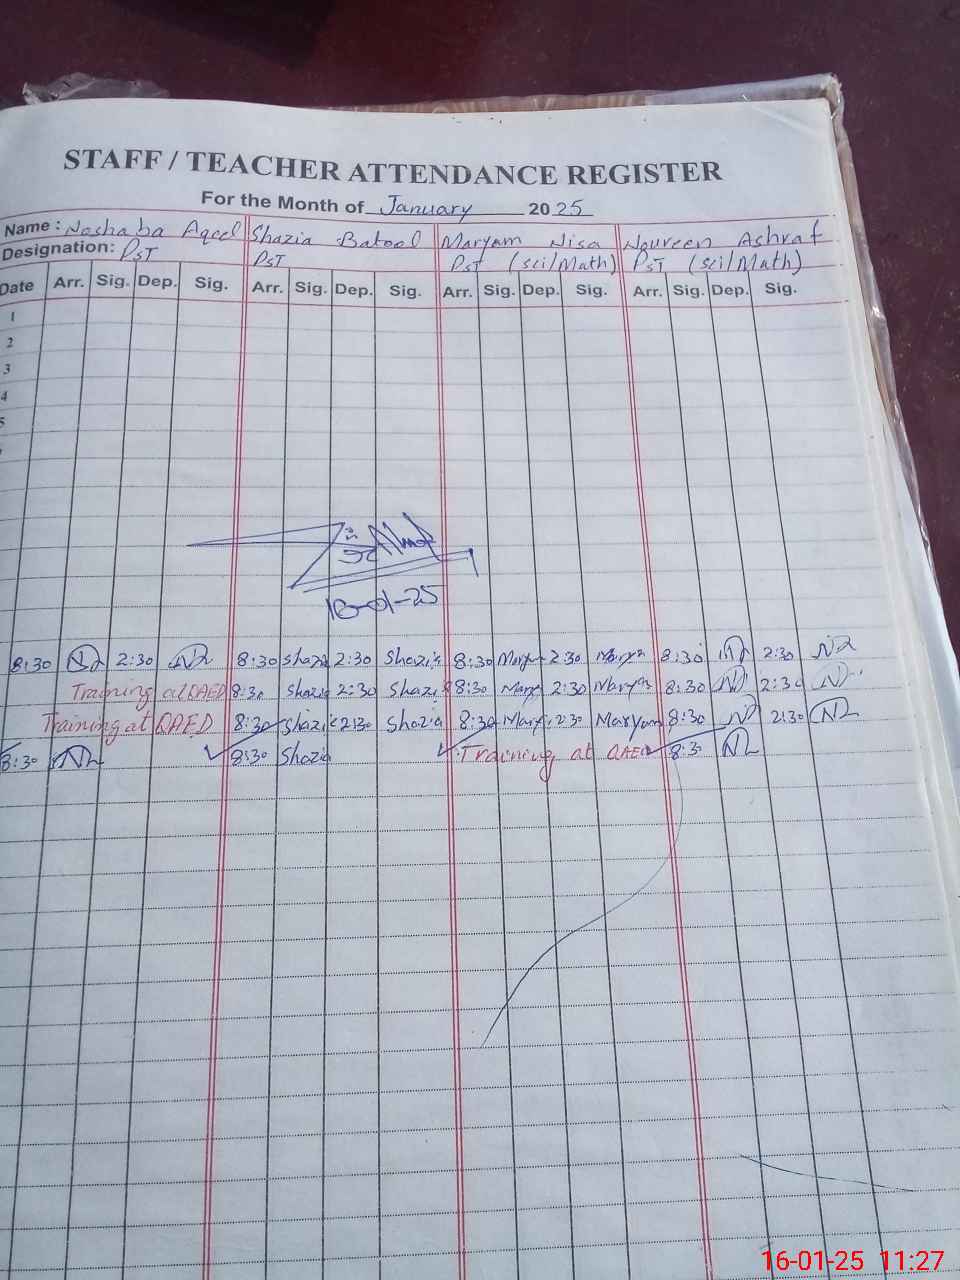 STAFF / TEACHER ATTENDANCE REGISTER
For the Month of January 2025
Name: Noshaba Aqeel Shazia Batool Maryam Nisa Noureen Ashraf
Designation: PST PST PST (sci/Math) PST (sci/Math)
Date Arr. Sig. Dep. Sig. Arr. Sig. Dep. Sig. Arr. Sig. Dep. Sig. Arr. Sig. Dep. Sig.
1
2
3
4
5
-01-25
8:30 2:30 8:30 Shazia 2:30 Shazia 8:30 Marya 2:30 Marya 8:30 2:30
Training at QAED 8:30 Shazia 2:30 Shazia 8:30 Mary 2:30 Marya 8:30 2:30
Training at QAED 8:30 Shazia 2:30 Shazia 8:30 Mary 2:30 Maryam 8:30 2:30
8:30 8:30 Shazia Training at QAED 8:30
16-01-25 11:27